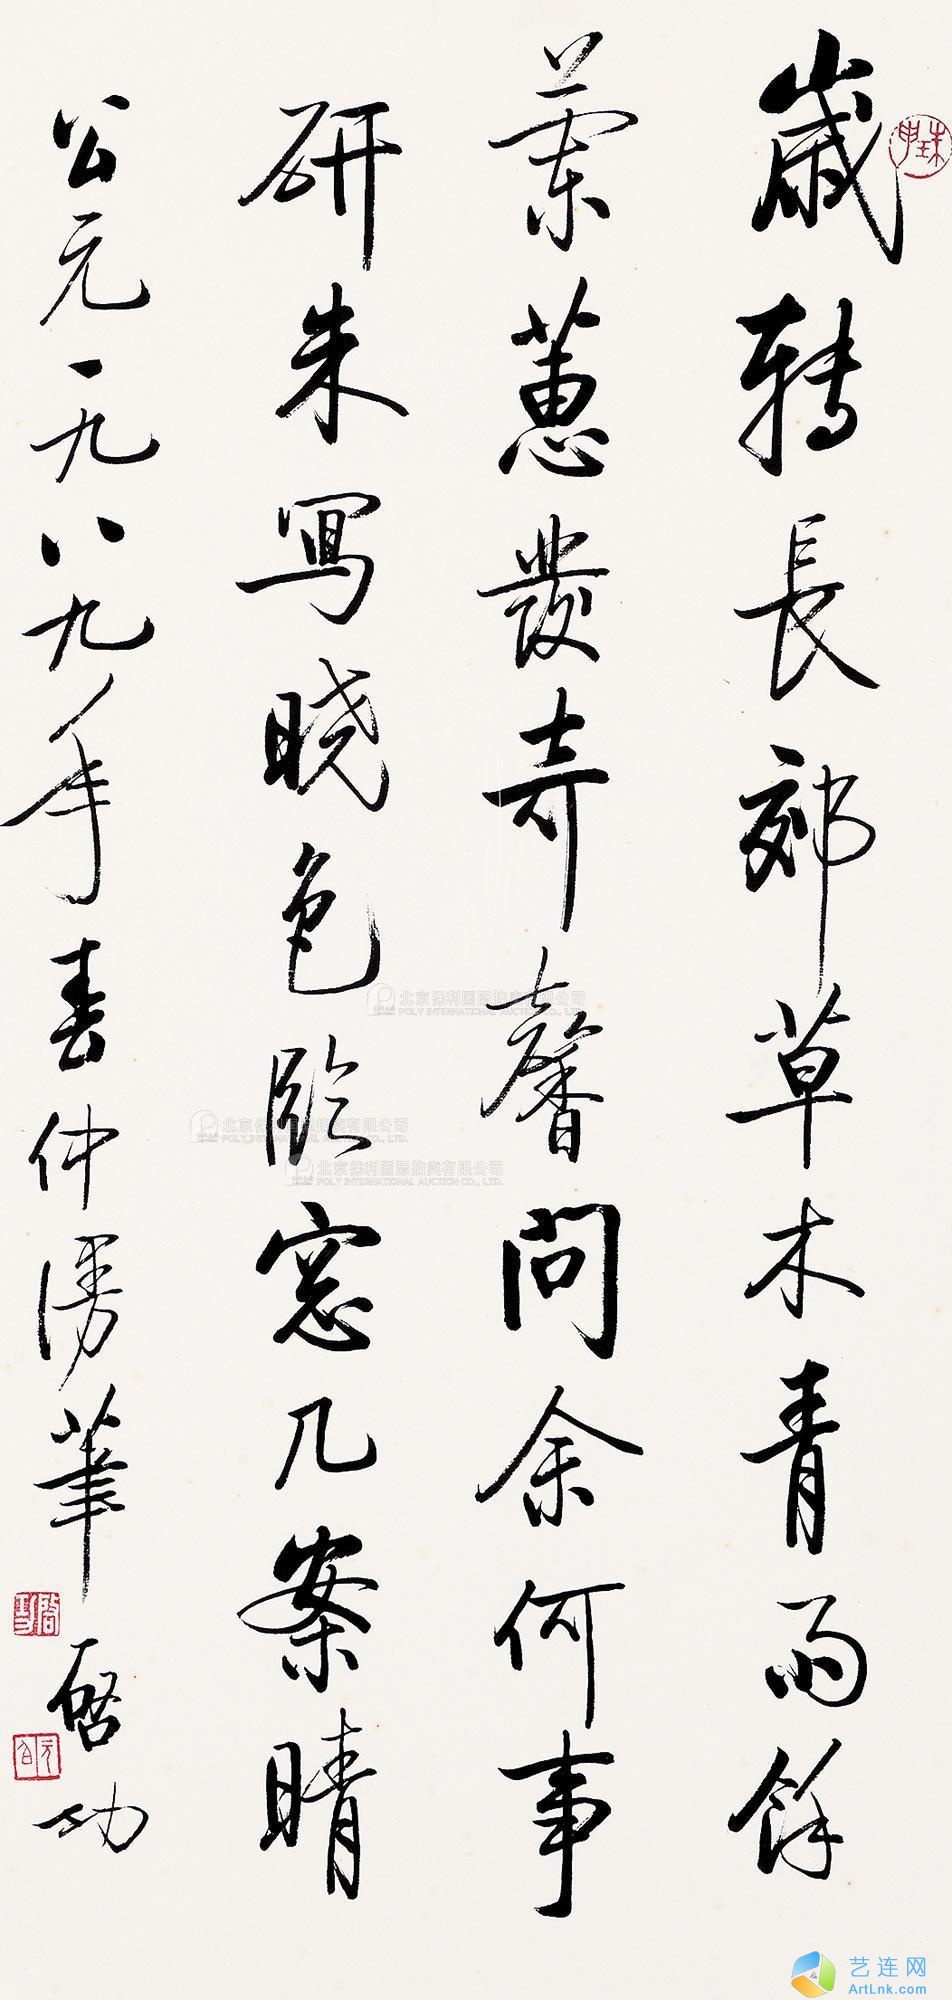 歲轉長郊草木青雨餘
蘭蕙發奇馨問余何事
研朱寫曉色臨窓几案晴
公元一九八九年春仲漫筆 啓功
啓功
元白
北京保利国际拍卖有限公司
POLY INTERNATIONAL AUCTION CO., LTD.
北京保利国际拍卖有限公司
POLY INTERNATIONAL AUCTION CO., LTD.
北京保利国际拍卖有限公司
POLY INTERNATIONAL AUCTION CO., LTD.
艺连网
ArtLnk.com